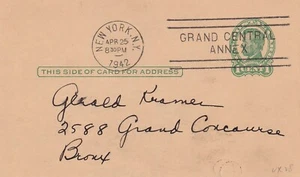 NEW YORK, N.Y.
APR 25
8 30 PM
1942
GRAND CENTRAL
ANNEX
THIS SIDE OF CARD FOR ADDRESS
Gerald Kramer
2588 Grand Concourse
Bronx